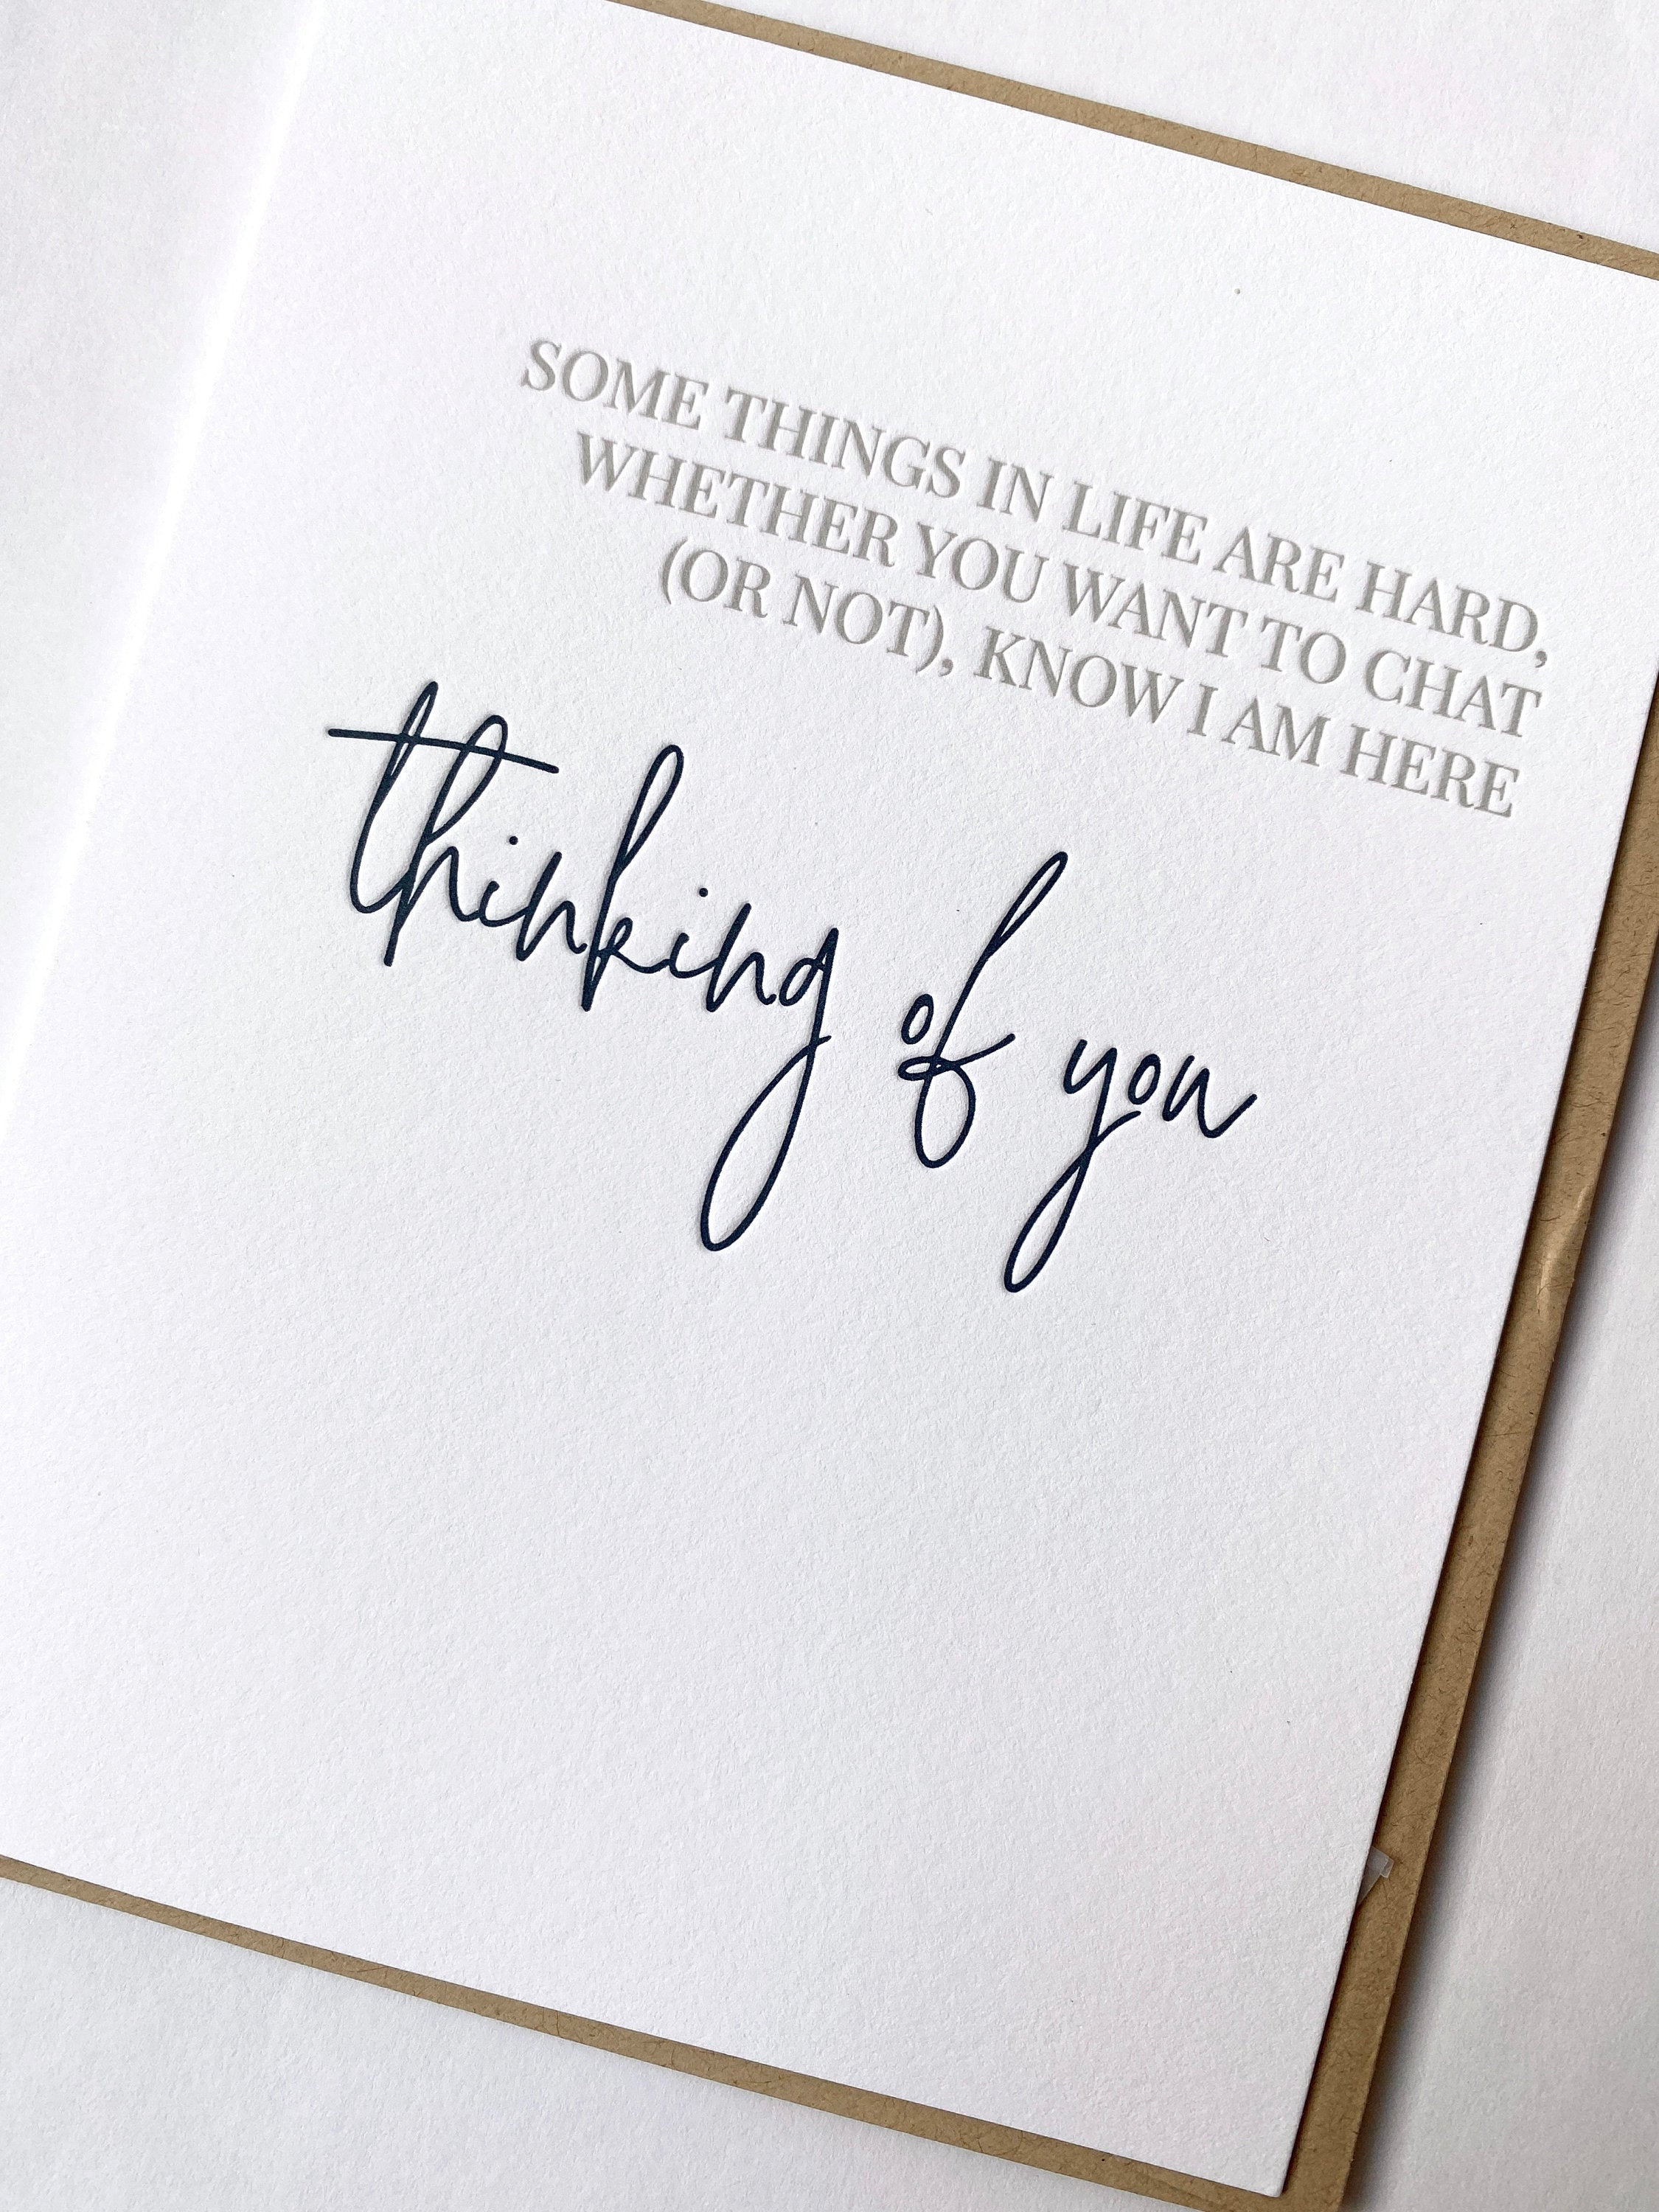 SOME THINGS IN LIFE ARE HARD,
WHETHER YOU WANT TO CHAT
(OR NOT), KNOW I AM HERE
thinking of you